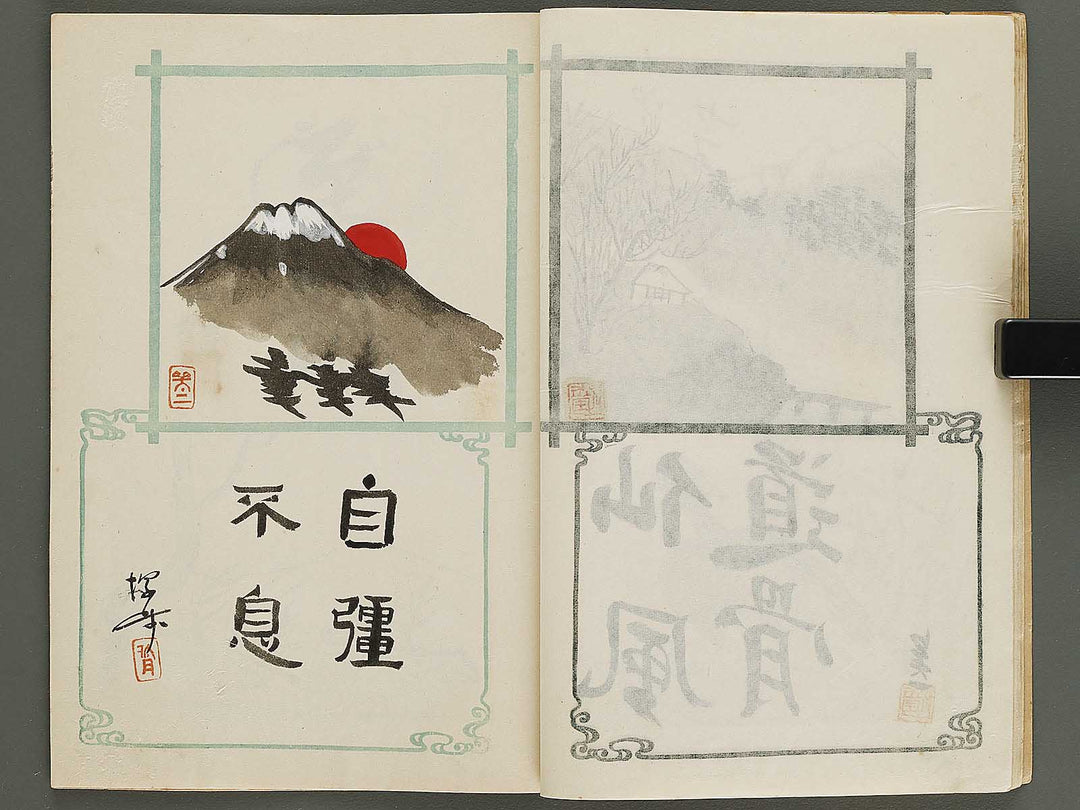 自彊
不息
仙風
道骨